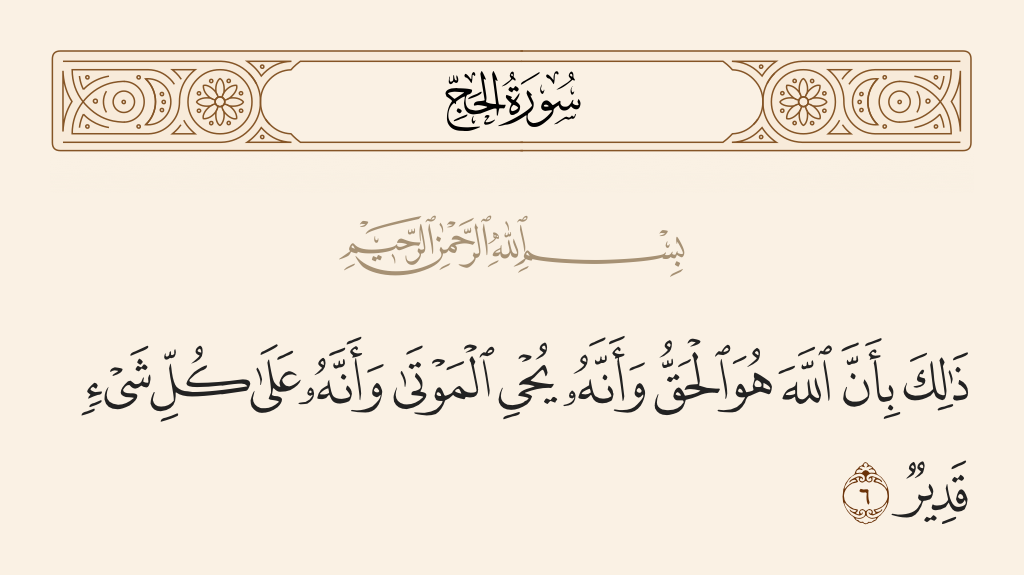 سُورَةُ الحَجِّ
بِسْمِ ٱللَّهِ ٱلرَّحْمَٰنِ ٱلرَّحِيمِ
ذَٰلِكَ بِأَنَّ ٱللَّهَ هُوَ ٱلْحَقُّ وَأَنَّهُۥ يُحْىِ ٱلْمَوْتَىٰ وَأَنَّهُۥ عَلَىٰ كُلِّ شَىْءٍ
قَدِيرٌ ٦